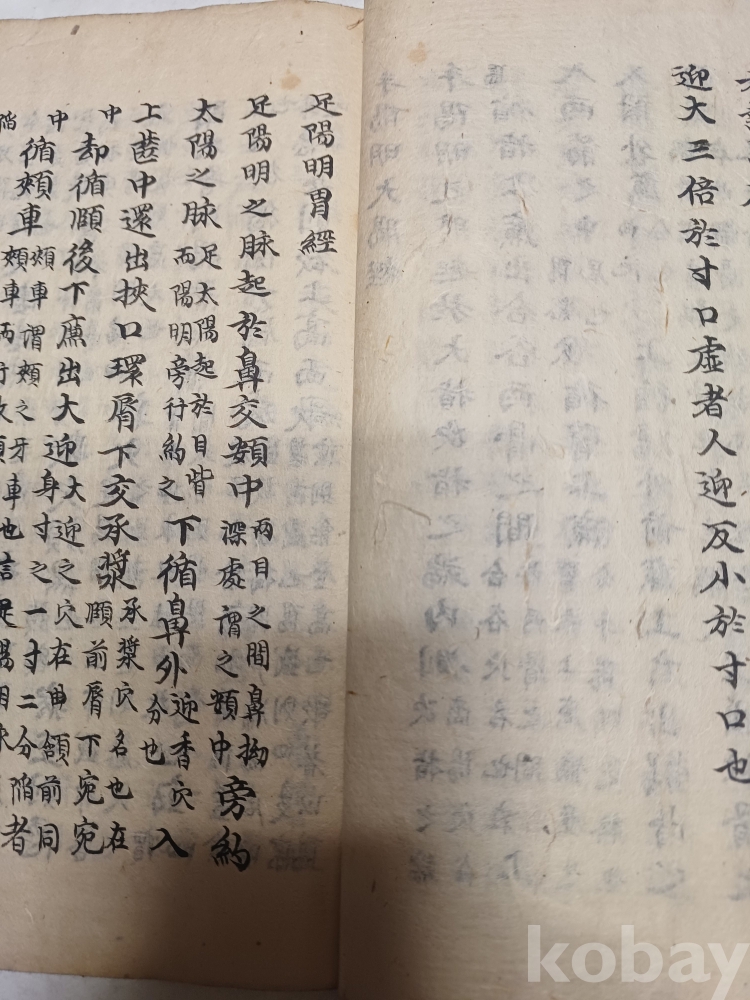 迎大三倍於寸口虛者人迎反小於寸口也
足陽明胃經
足陽明之脉起於鼻交頞中兩目之間鼻拗深處謂之頞中旁約
太陽之脉足太陽起於目眥而陽明旁行約之下循鼻外迎香穴分也入
上齒中還出挾口環脣下交承漿承漿穴名也在頤前脣下宛宛
中却循頤後下廉出大迎大迎之穴在曲頷前同身寸之一寸二分陷者
中循頰車頰車謂頰之牙車也言是陽明